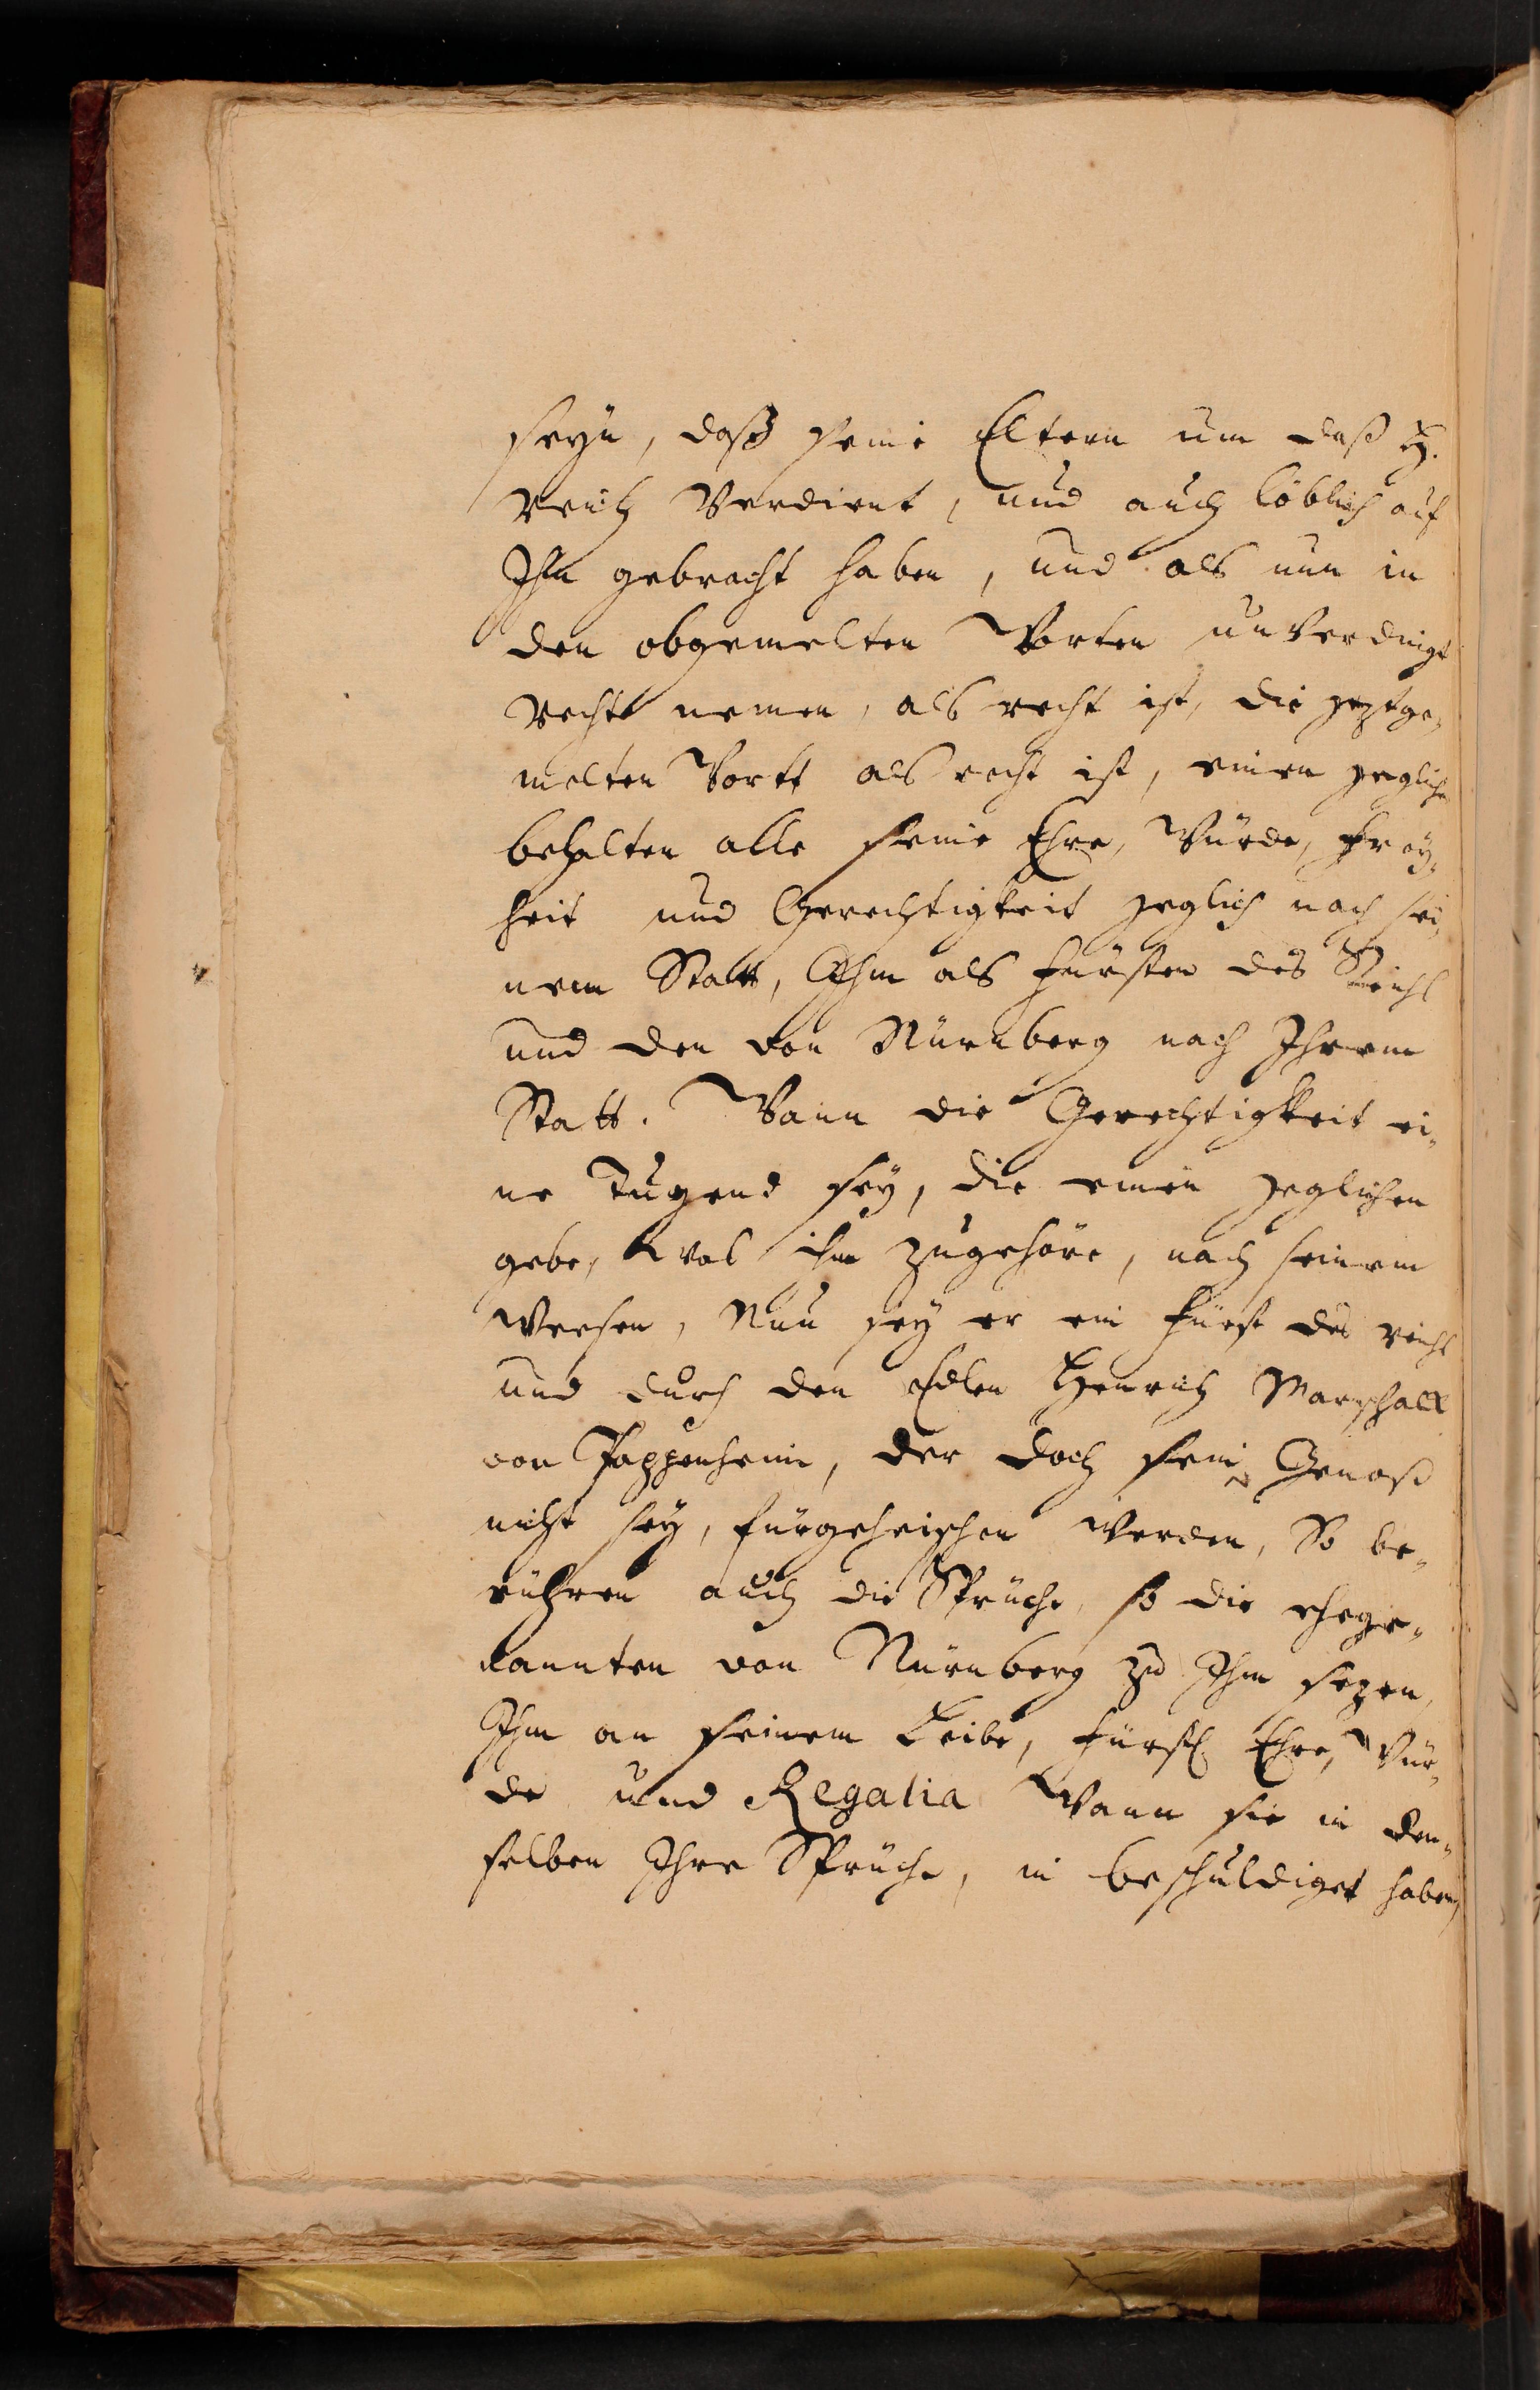 seÿn, daß seine Eltern um daß H.
Reich Verdient, und auch löblich auf
Ihn gebracht haben, und als nun in
den obgemelten Worten unverdingt
Recht nemen, als recht ist, die jeztge„
melten Wortt als recht ist, einen jeglichen
behalten alle seine Ehre, Würde, Freÿ„
heit und Gerechtigkeit jeglich nach sei„
nem Statt, Ihm als Fürsten des Reichs
und den von Nürnberg nach Ihrem
Statt. Wann die Gerechtigkeit ei„
ne Tugend seÿ, die einen jeglichen
gebe, was ihm zugehöre, nach seinem
Weesen, Nun seÿ er ein Fürst des reichs
und durch den Edlen Henrich Marschall
von Pappenheim, der doch sein Genoß
nicht seÿ, fürgeheischen werden, So be„
rühren auch die Sprüche, so die ehege„
nannten von Nürnberg zu Ihm sezen,
Ihm an seinem Leibe, Fürstl Ehre, Wür„
de und Regalia Wann sie in den„
selben Ihre Sprüche, in beschuldiget haben,